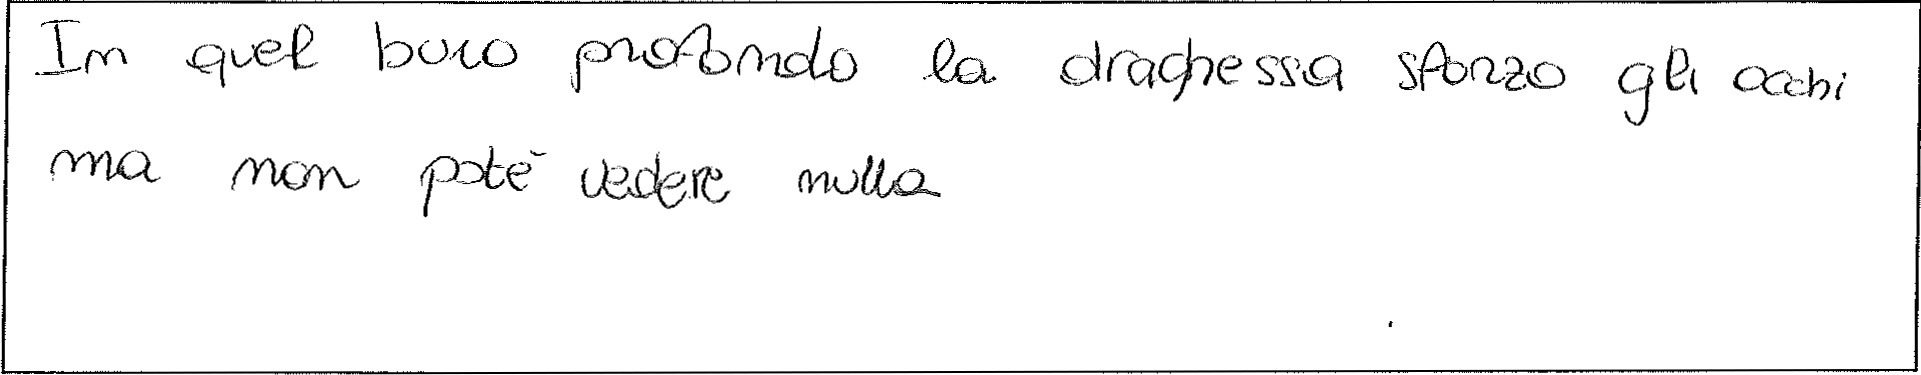 In quel buco profondo la draghessa sforzo gli occhi
ma non potè vedere nulla